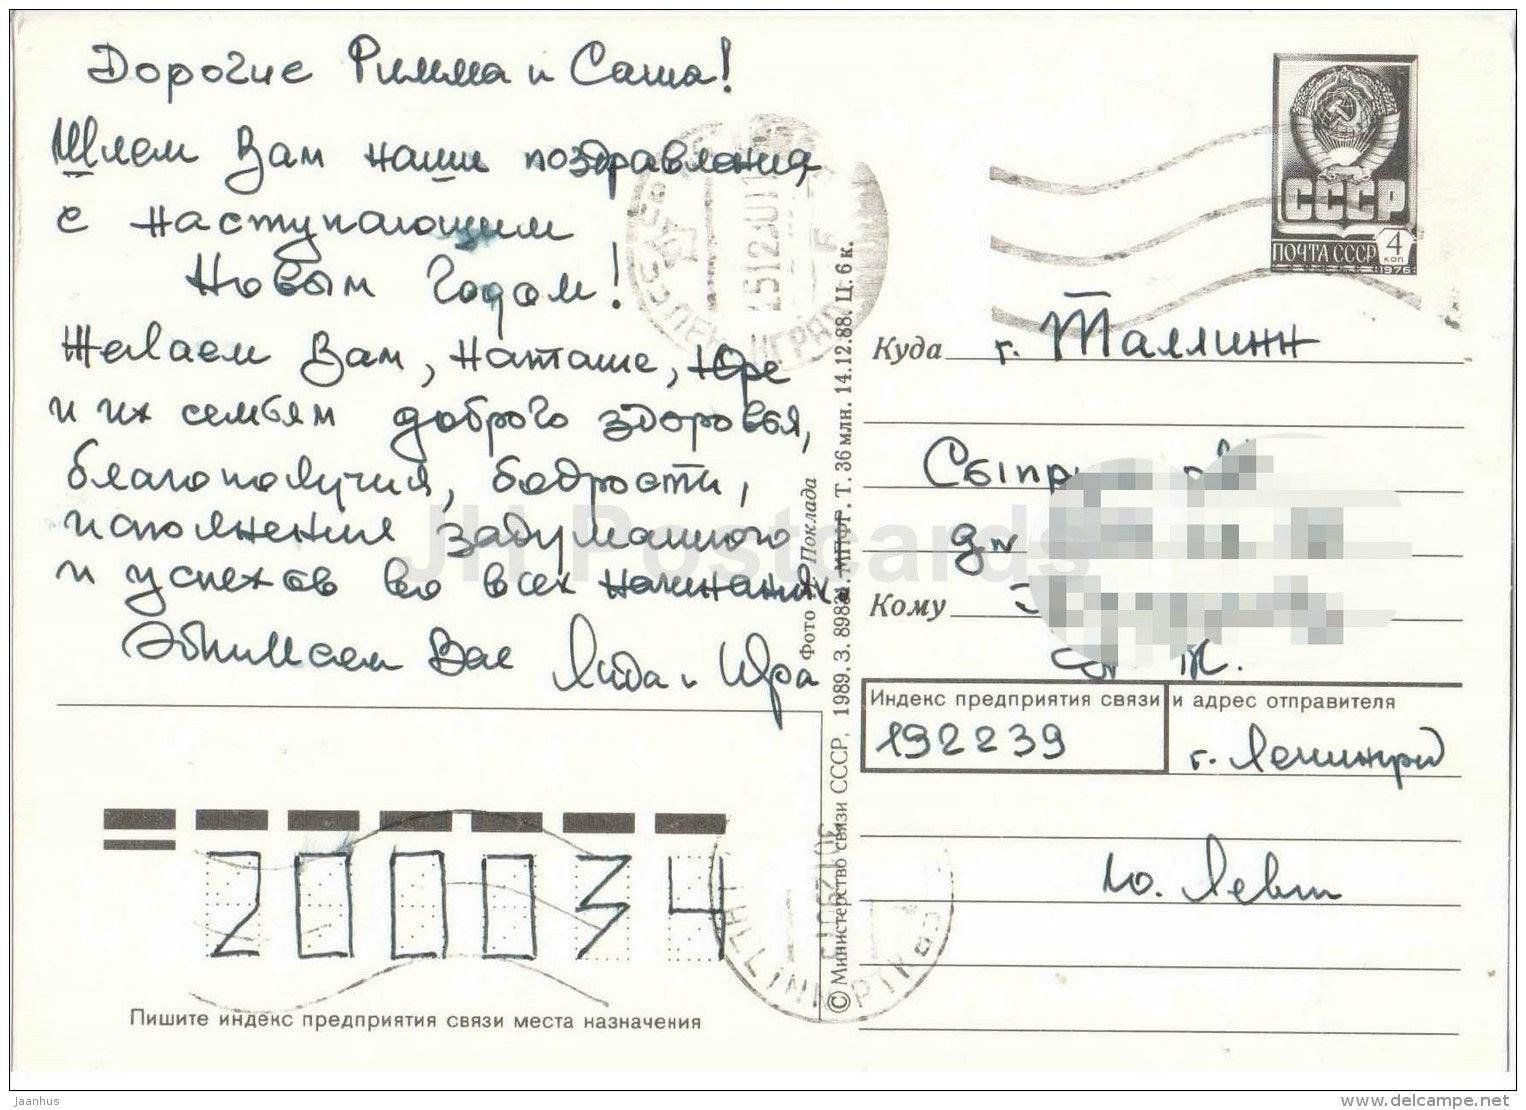 Дорогие Римма и Саша!
Шлем Вам наши поздравления
с наступающим
Новым Годом!
Желаем Вам, Наташе, Юре
и их семьям доброго здоровья,
благополучия, бодрости,
исполнения задуманного
и успехов во всех начинаниях.
Обнимаем Вас Лида и Юра
Пишите индекс предприятия связи места назначения
200034
© Министерство связи СССР, 1989. З. 8988. МПФГ. Т. 36 млн. 14.12.88. Ц. 6 к.
Фото Поклада
СССР
ПОЧТА СССР 4 коп
1976
Куда г. Таллинн
Кому
Индекс предприятия связи и адрес отправителя
192239 г. Ленинград
Ю. Левит
JH Postcards
Jaanhus
www.delcampe.net